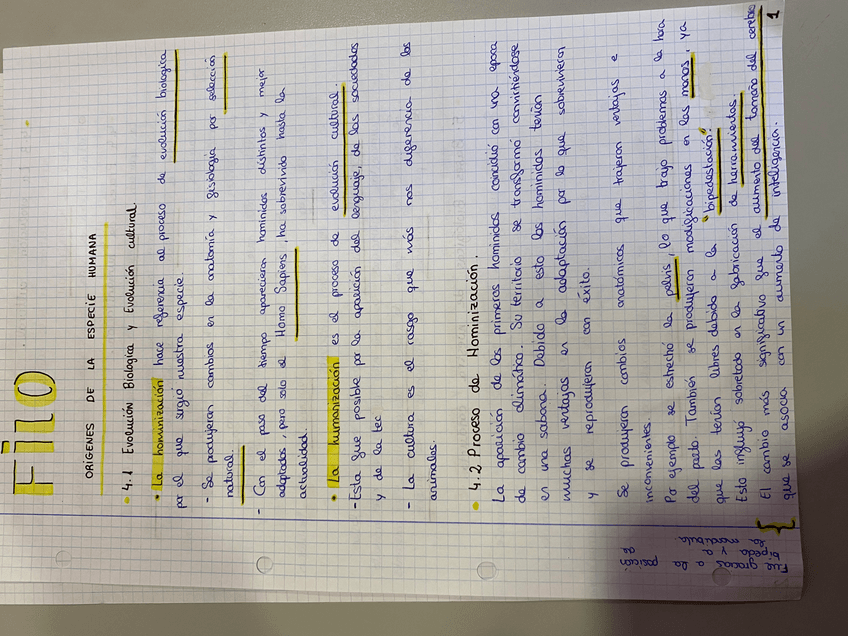 Filo
ORÍGENES DE LA ESPECIE HUMANA
4.1 Evolución Biológica y Evolución cultural.
• La hominización hace referencia al proceso de evolución biológica
por el que surgió nuestra especie.
- Se produjeron cambios en la anatomía y fisiología por selección
natural.
- Con el paso del tiempo aparecieron homínidos distintos y mejor
adaptados, pero solo el Homo Sapiens, ha sobrevivido hasta la
actualidad.
• La humanización es el proceso de evolución cultural.
- Esta fue posible por la aparición del lenguaje, de las sociedades
y de la tec
- La cultura es el rasgo que más nos diferencia de los
animales.
• 4.2 Proceso de Hominización.
La aparición de los primeros homínidos coincidió con una época
de cambio climático. Su territorio se transformó convirtiéndose
en una sabana. Debido a esto los homínidos tenían
muchas ventajas en la adaptación por lo que sobrevivieron
y se reprodujeron con éxito.
Se produjeron cambios anatómicos que trajeron ventajas e
inconvenientes.
Por ejemplo se estrechó la pelvis, lo que trajo problemas a la hora
del parto. También se produjeron modificaciones en las manos, ya
que las tenían libres debido a la "bipedestación".
Esto influyó sobretodo en la fabricación de herramientas.
El cambio más significativo fue el aumento del tamaño del cerebro
que se asocia con un aumento de inteligencia.
1
gracias a la
mandíbula.